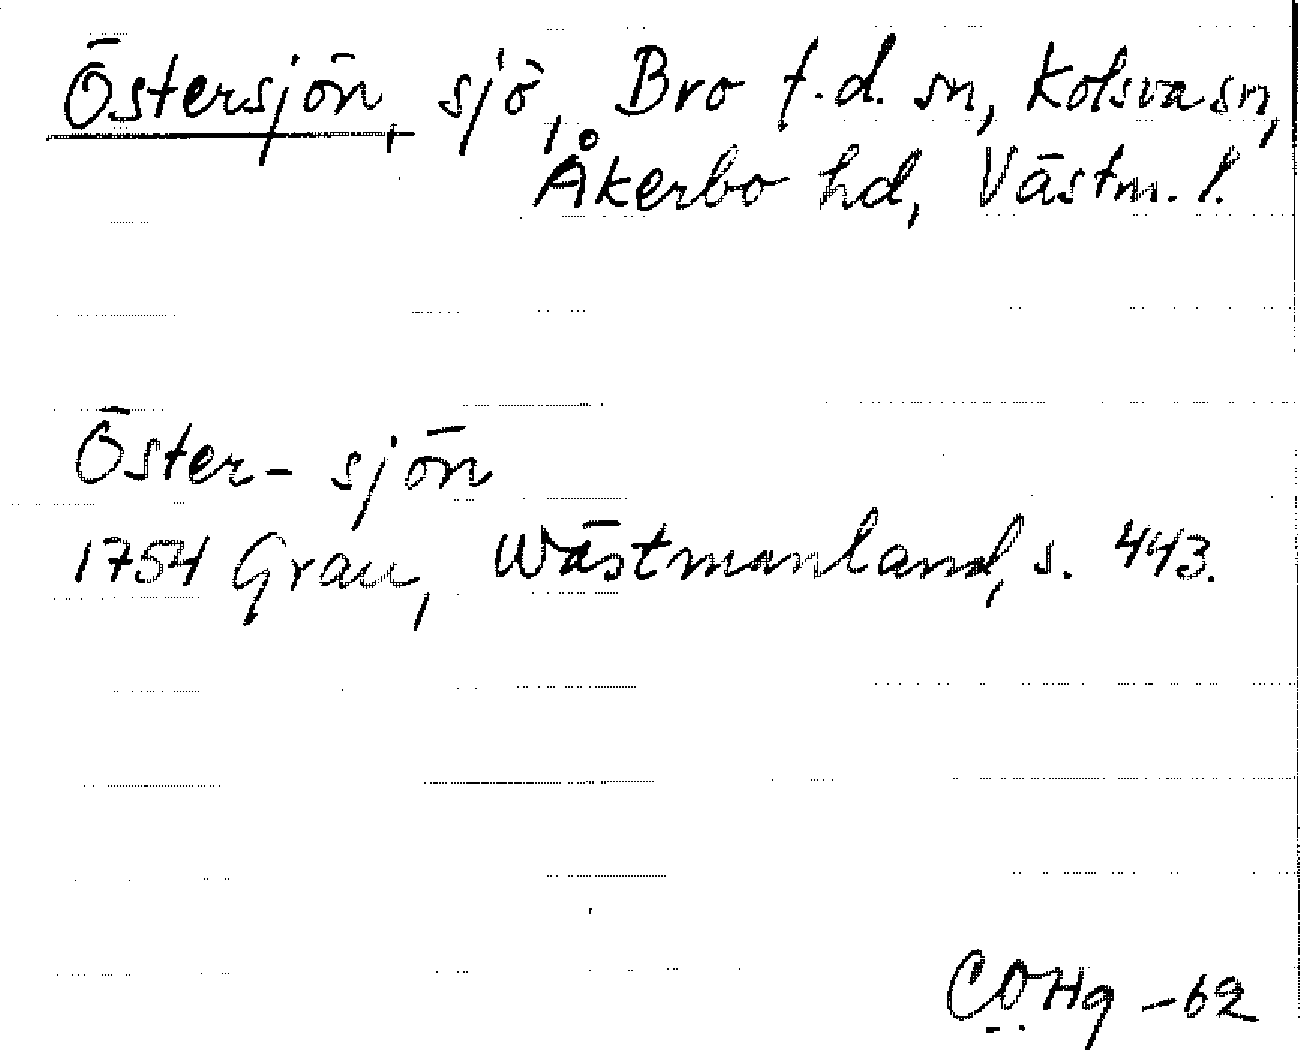 Östersjön, sjö, Bro f.d. sn, Kolsva sn,
Åkerbo hd, Västm. l.
Öster- sjön
1754 Grau, Wästmanland, s. 443.
COHg -62